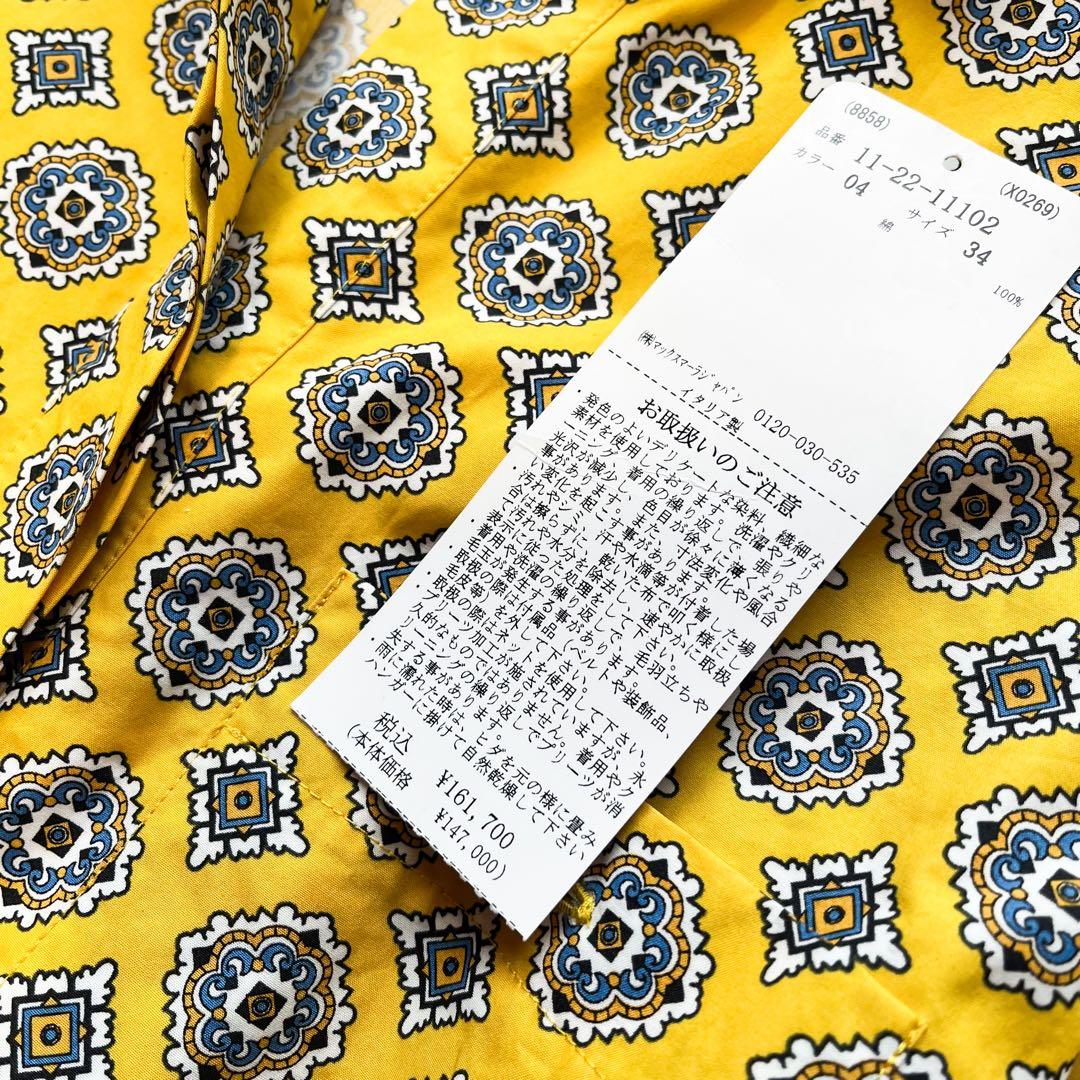 (8858)
(X0269)
品番 11-22-11102
カラー 04 サイズ 34
綿 100%
㈱マックスマーラジャパン 0120-030-535
イタリア製
お取扱いのご注意
発色のよいデリケートな染料、繊細な
素材を使用しております。洗濯やクリ
ーニング、着用の繰り返しで、張りや
光沢が減少し、色目が徐々に薄くなる
事があります。また、寸法変化や風合
い変化を起こす事があります。
・汗や水滴等が付着した場
合は擦らずに、乾いた布で叩く様にし
て汚れや水分を除去して下さい。
・汚れやシミ、
表示に従った処理をして下さい。速やかに取扱
・着用や洗濯の繰り返しで、毛羽立ちや
毛玉が発生する事があります。
・取扱の際は付属品(ベルトや装飾品、
毛皮等)を外して下さい。
・取扱の際はネットを使用して下さい。
プリーツ加工が施されていますが、永
久的なものではありません。着用やク
リーニングの繰り返しでプリーツが消
失する事があります。
・雨に濡れた時は、ヒダを元の様に畳み
ハンガーに掛けて自然乾燥して下さい
税込 ¥161,700
(本体価格 ¥147,000)